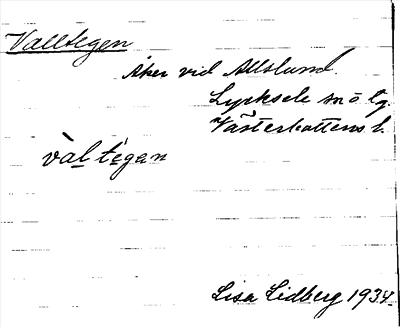 Valltegen
Åker vid Allslund.
Lycksele sn ö tg.
Västerbottens l.
vàl tégan
Lisa Lidberg 1934